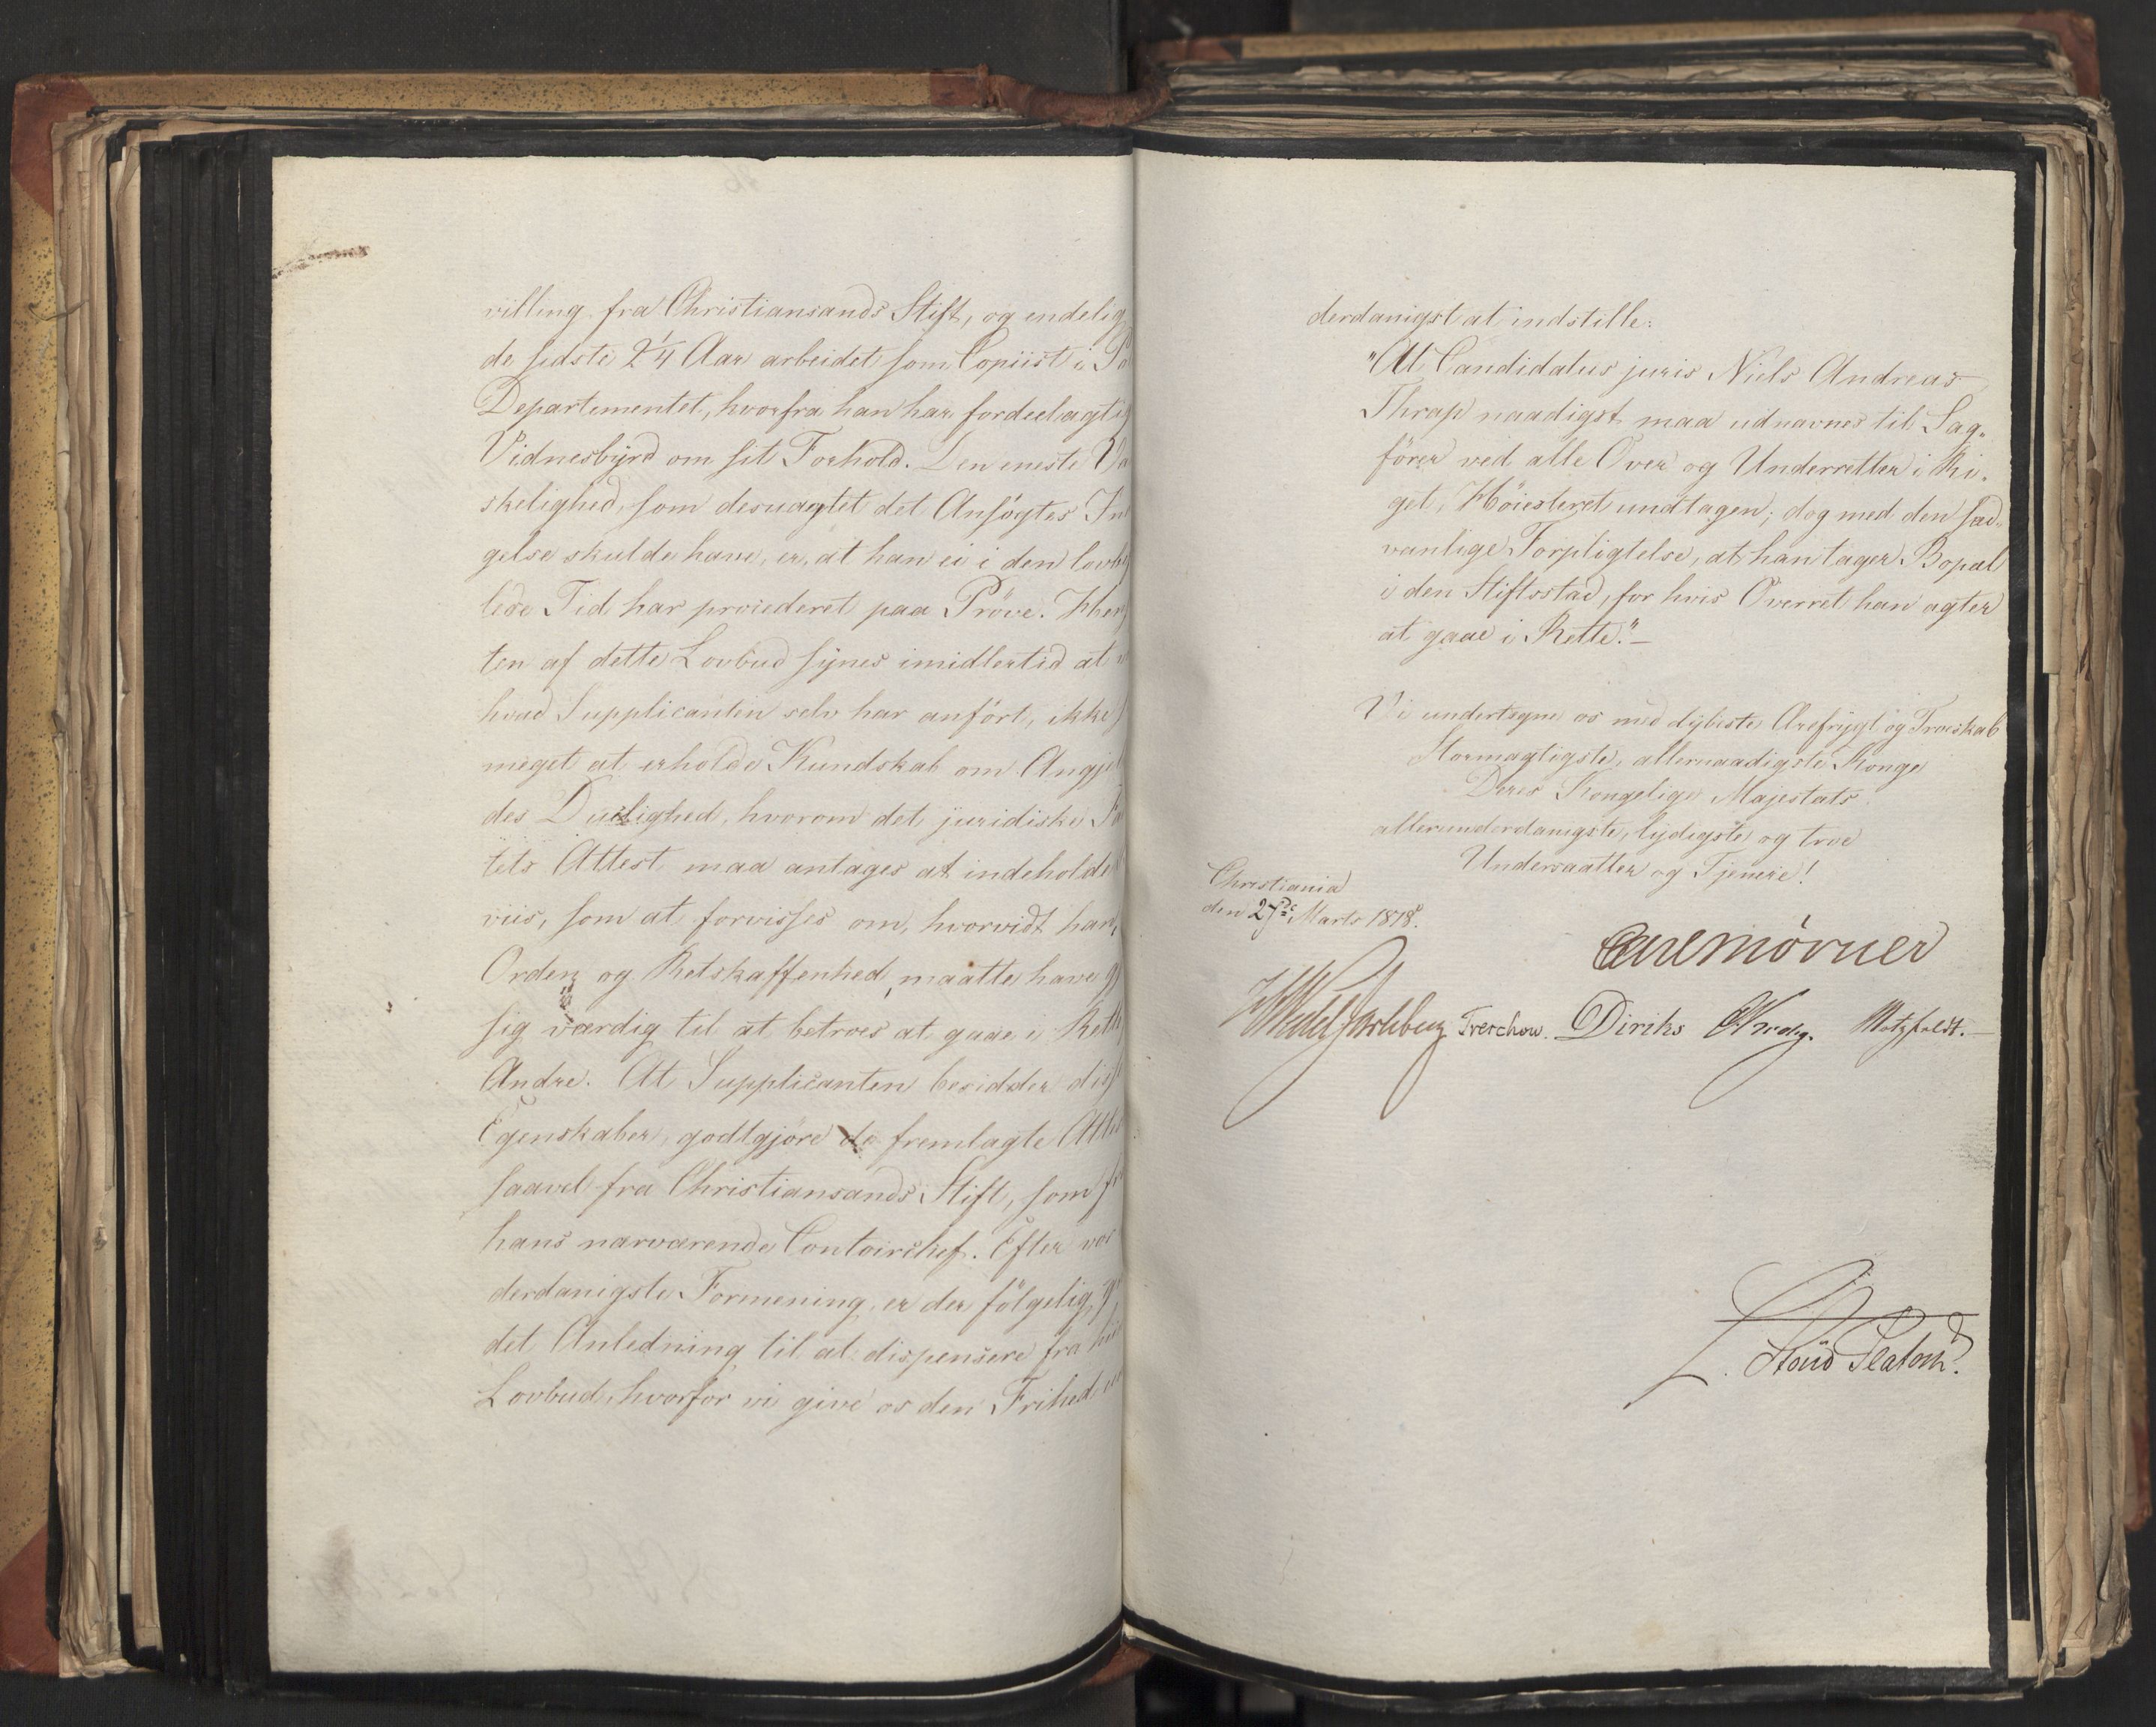 villing fra Christiansands Stift, og endelig
de sidste 2 1/4 Aar arbeidet som Copiist i Po
Departementet, hvorfra han har fordeelagtig
Vidnesbÿrd om sit Forhold. Den eneste Va
skelighed, som desuagtet det Ansögtes In
gelse skulde have, er, at han ei i den lovbe
lede Tid har proiederet paa Pröve. Hen
ten af dette Lovbud sÿnes imidlertid at
hvad Supplicanten selv har anfört, ikke
meget at erholde Kundskab om Angjel
des Duelighed, hvorom det juridiske Fa
tets Attest maa antages at indeholde
viis, som at forvisses om, hvorvidt han,
Orden og Retskaffenhed, maatte have gj
sig værdig til at betroes at gaae i Rette
Andre. At Supplicanten besidder disse
Egenskaber, godtgjöre de fremlagte Atte
saavel fra Christiansands Stift, som fra
hans nærværende Contoirchef. Efter vor
derdanigste Formening er der fölgelig
det Anledning til at dispensere fra
Lovbud, hvorfor vi give os den Frihed
derdanigst at indstille:
"At Candidatus juris Niels Andreas
Thrap naadigst maa udnævnes til Sag-
förer ved alle Over og Underretter i Ri-
get, Höiesteret undtagen; dog med den sæd-
vanlige Forpligtelse, at han tager Bopæl
i den Stiftsstad, for hvis Overret han agter
at gaae i Rette."-
Vi undertegne os med dÿbeste Ærefrÿgt og Troeskab
Stormægtigste, allernaadigste Konge
Deres Kongelige Majestæts
allerunderdanigste, lÿdigste og troe
Undersaatter og Tjenere!
Christiania
den 27de Marts 1818.
Carl Mörner
HWedel Jarlsberg Treschow. Diriks Krog. Motzfeldt.
L. Stoud Platou.